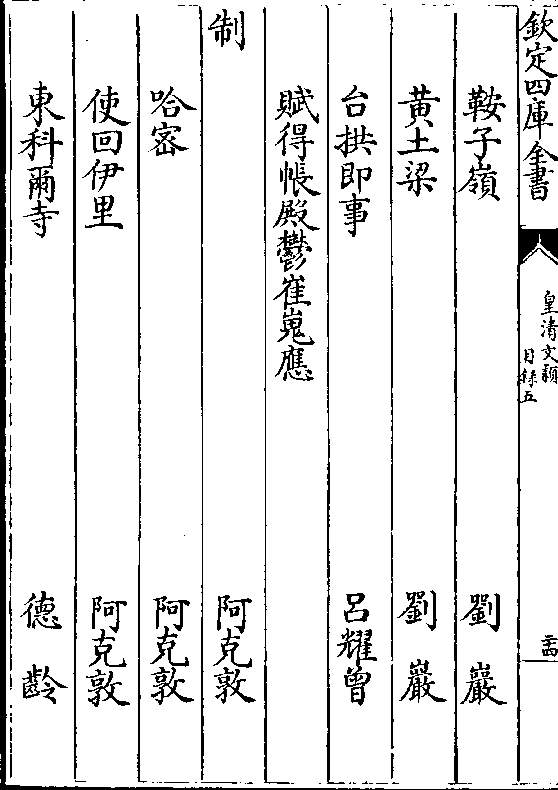 欽定四庫全書
皇清文頴
目録五
二十四
鞍子嶺 劉巖
黄土梁 劉巖
台拱即事 呂耀曾
賦得帳殿鬱崔嵬應
制 阿克敦
哈密 阿克敦
使回伊里 阿克敦
東科爾寺 德齡